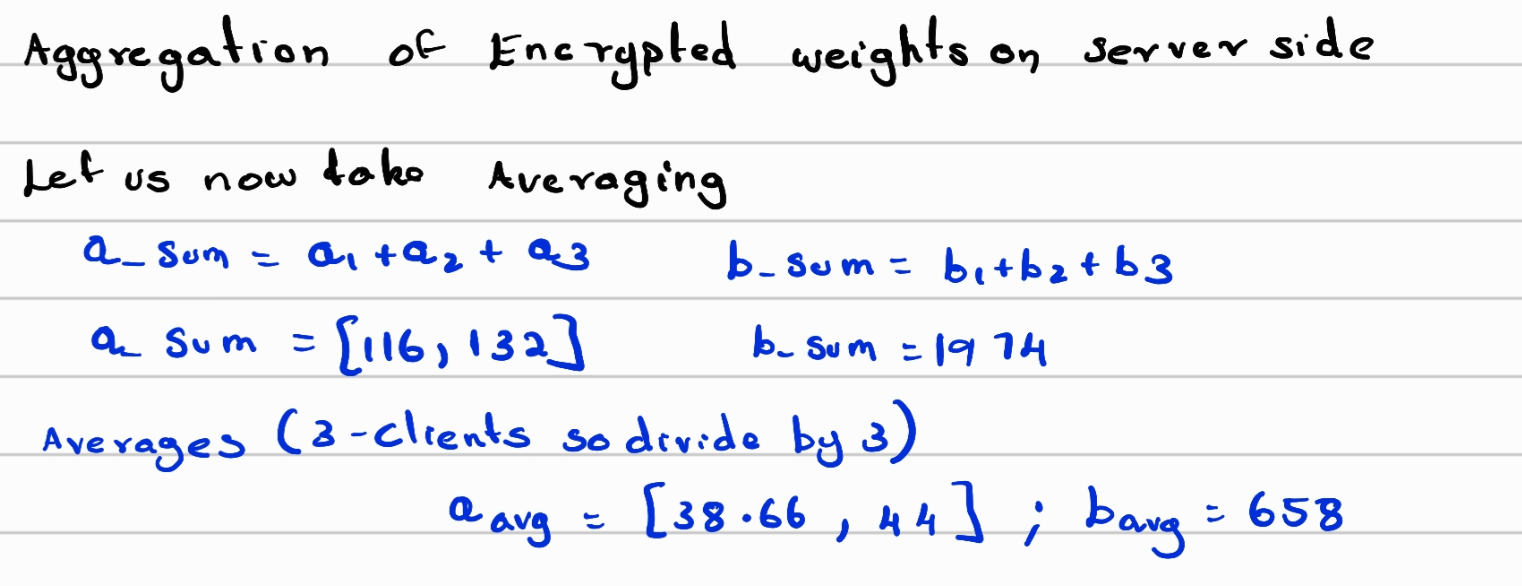 Aggregation of Encrypted weights on server side
Let us now take Averaging
a_sum = a₁ + a₂ + a3 b_sum = b₁ + b₂ + b3
a_sum = [116, 132] b_sum = 1974
Averages (3-clients so divide by 3)
a avg = [38.66, 44] ; bavg = 658